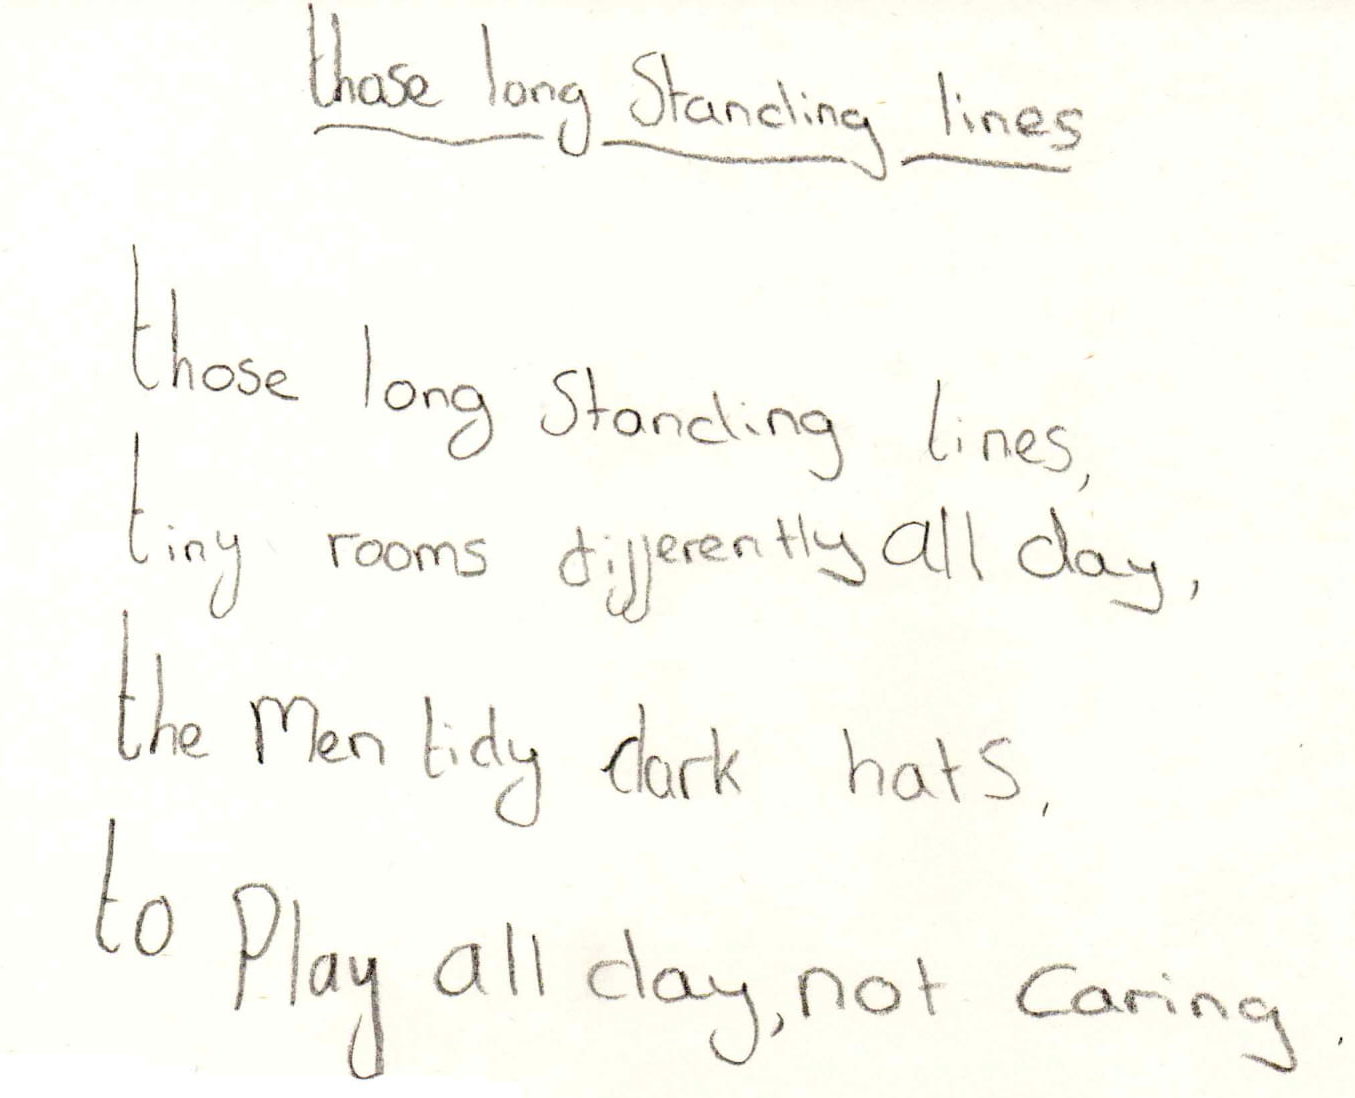 those long Standing lines
those long Standing lines,
tiny rooms differently all day,
the Men tidy dark hats,
to Play all day, not Caring.